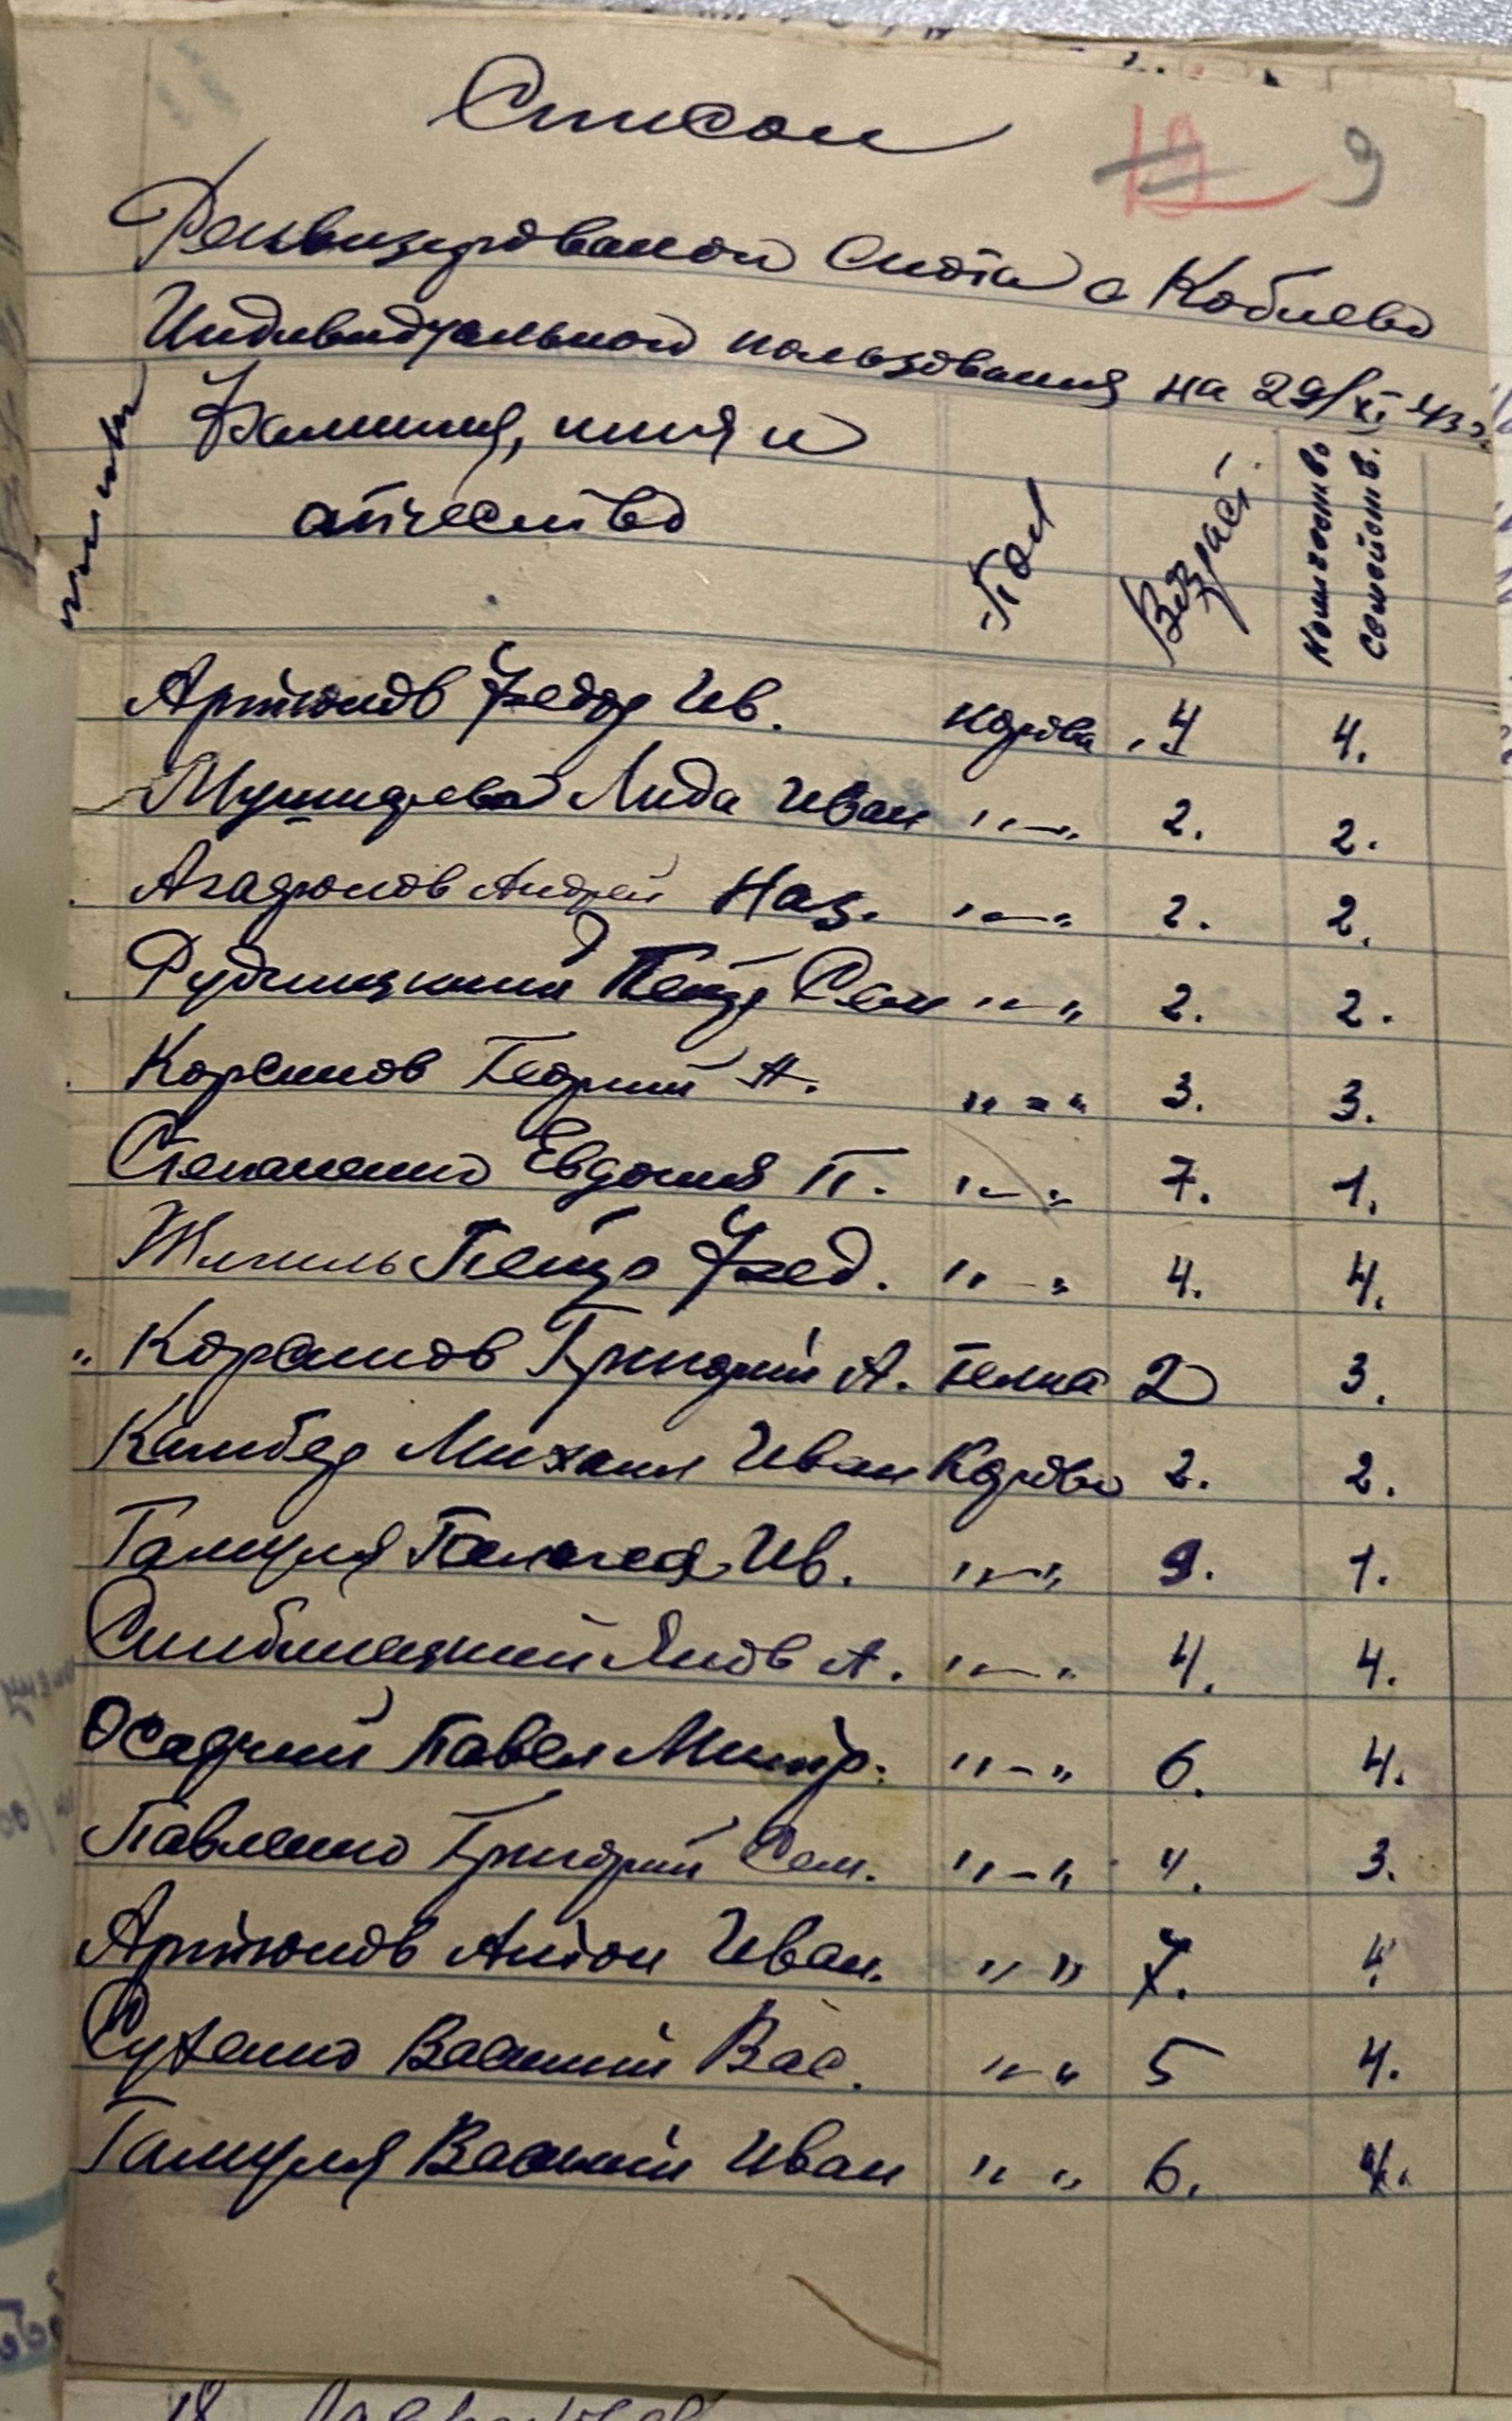 Список
9
Реквизированой скота с Кобиево
Индивидуального пользования на 29/XI 43 г.
Фамилия, имя и
отчество
Пол
Возраст
Количество
семейств.
Артюнов Федор Ив. корова 4 4.
Лида Иван " — " 2. 2.
Агафонов Андрей Наз. " — " 2. 2.
Рудницкий Петр Сем " — " 2. 2.
Корсунов Георгий А. " — " 3. 3.
Степаненко Евдокия П. " — " 7. 1.
Петро Фед. " — " 4. 4.
" Корсунов Григорий А. телка 2 3.
Камбер Михаил Иван Корова 2. 2.
Ив. " — " 9. 1.
Яков А. " — " 4. 4.
Осадчий Павел Митр. " — " 6. 4.
Павленко Григорий Сем. " — " 4. 3.
Артюнов Антон Иван. " " 7. 4.
Сухенко Василий Вас. " — " 5 4.
Василий Иван " " 6. 4.
18